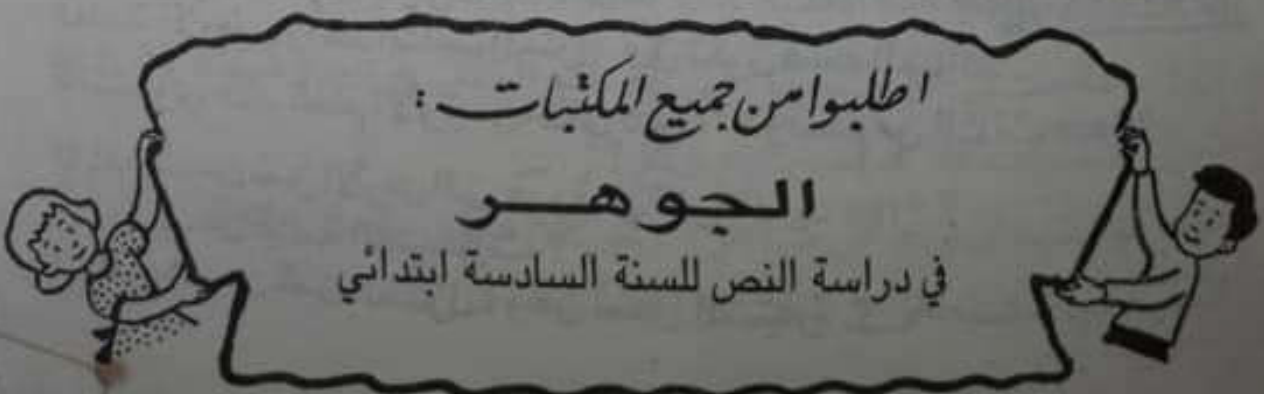 اطلبوا من جميع المكتبات :
الجوهر
في دراسة النص للسنة السادسة ابتدائي